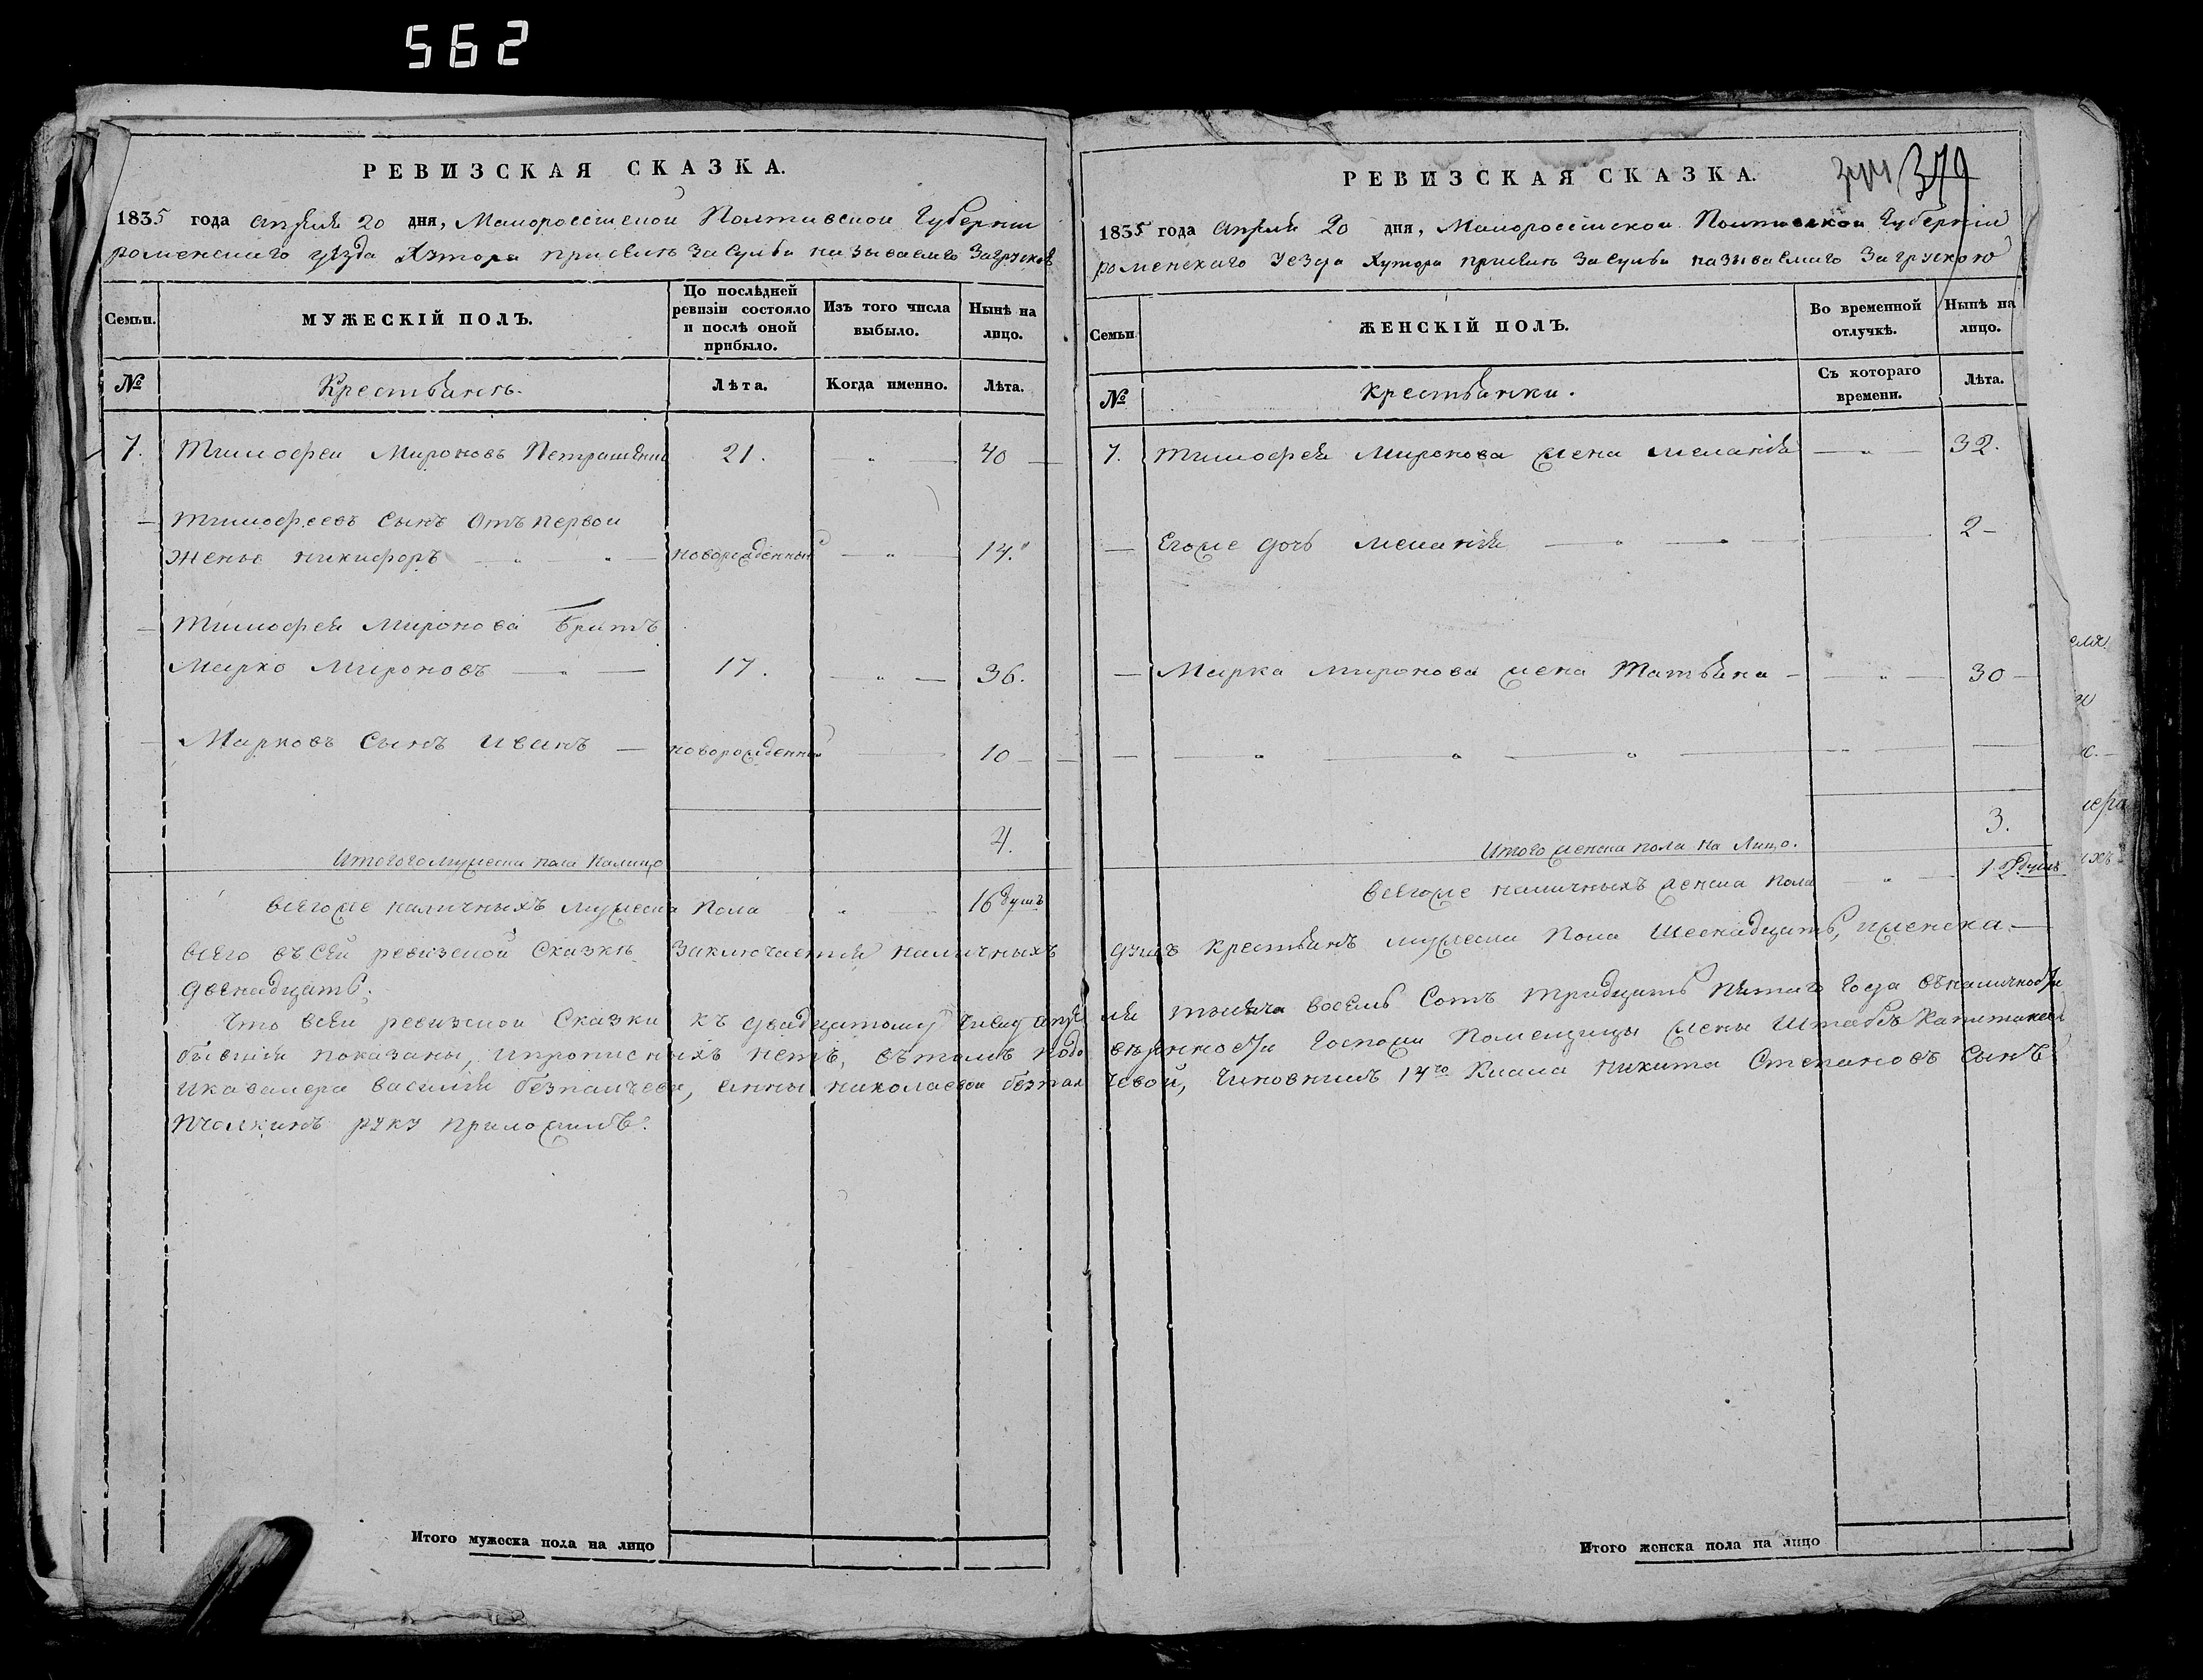 562
РЕВИЗСКАЯ СКАЗКА.
1835 года апреля 20 дня, Малороссійской Полтавской Губерніи
роменскаго уѣзда Хутора приселъ Засулья называемаго Загруское
Семьи.
МУЖЕСКІЙ ПОЛЪ.
По послѣдней ревизіи состояло и послѣ оной прибыло.
Изъ того числа выбыло.
Нынѣ на лицо.
№
Крестьянъ.
Лѣта.
Когда именно.
Лѣта.
7. Тимофей Мироновъ 21. — „ — 40 —
— Тимофеевъ Сынъ Отъ первой
Жены никифоръ — „ — „ — новорожденный — „ — 14.
— Тимофея Миронова Братъ
Марко Мироновъ — „ — 17. — „ — 36.
— Марковъ Сынъ иванъ — новорожденный — 10 —
4.
Итого мужеска пола Налицо
всегоже наличныхъ мужеска Пола — „ — 16 душъ
РЕВИЗСКАЯ СКАЗКА.
379
1835 года апреля 20 дня, Малороссійской Полтавской Губерніи
роменскаго уезда Хутора приселъ Засулья называемаго Загрускою
Семьи
ЖЕНСКІЙ ПОЛЪ.
Во временной отлучкѣ.
Нынѣ на лицо.
№
Крестьянки.
Съ котораго времени.
Лѣта.
7. Тимофея Миронова жена меланія — „ — 32.
— Егоже дочь меланія — „ — „ — 2 —
— Марка миронова жена Татьяна — — „ — 30 —
— — „ — „ — „ — „ — —
3.
Итого женска пола на Лицо.
всегоже наличныхъ женска Пола — „ — 12 душъ
всего въсей ревизской Сказкѣ Заключается наличныхъ душъ крестьянъ мужеска Пола Шеснадцать, иженска —
двенадцать.
Что всеи ревизской Сказки къ двадцатому числу апреля тысяча восемь Сотъ тридцать пятаго Года въналичности
бывшія показаны, ипрописныхъ нетъ, вътомъ подоверенности Госпожи Помещицы жены Штабсъ Капитана
икавалера василія безпалчева, анны николаевои безпалчевой, Чиновникъ 14го Класа никита Степановъ Сынъ
Пчолкинъ руку приложилъ.
Итого мужеска пола на лицо
Итого женска пола на лицо